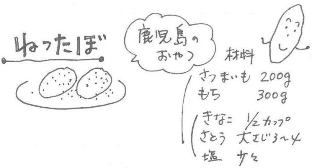 ねったぼ
鹿児島の
おやつ
材料
さつまいも 200g
もち 300g
きなこ 1/2カップ
さとう 大さじ3~4
塩 少々